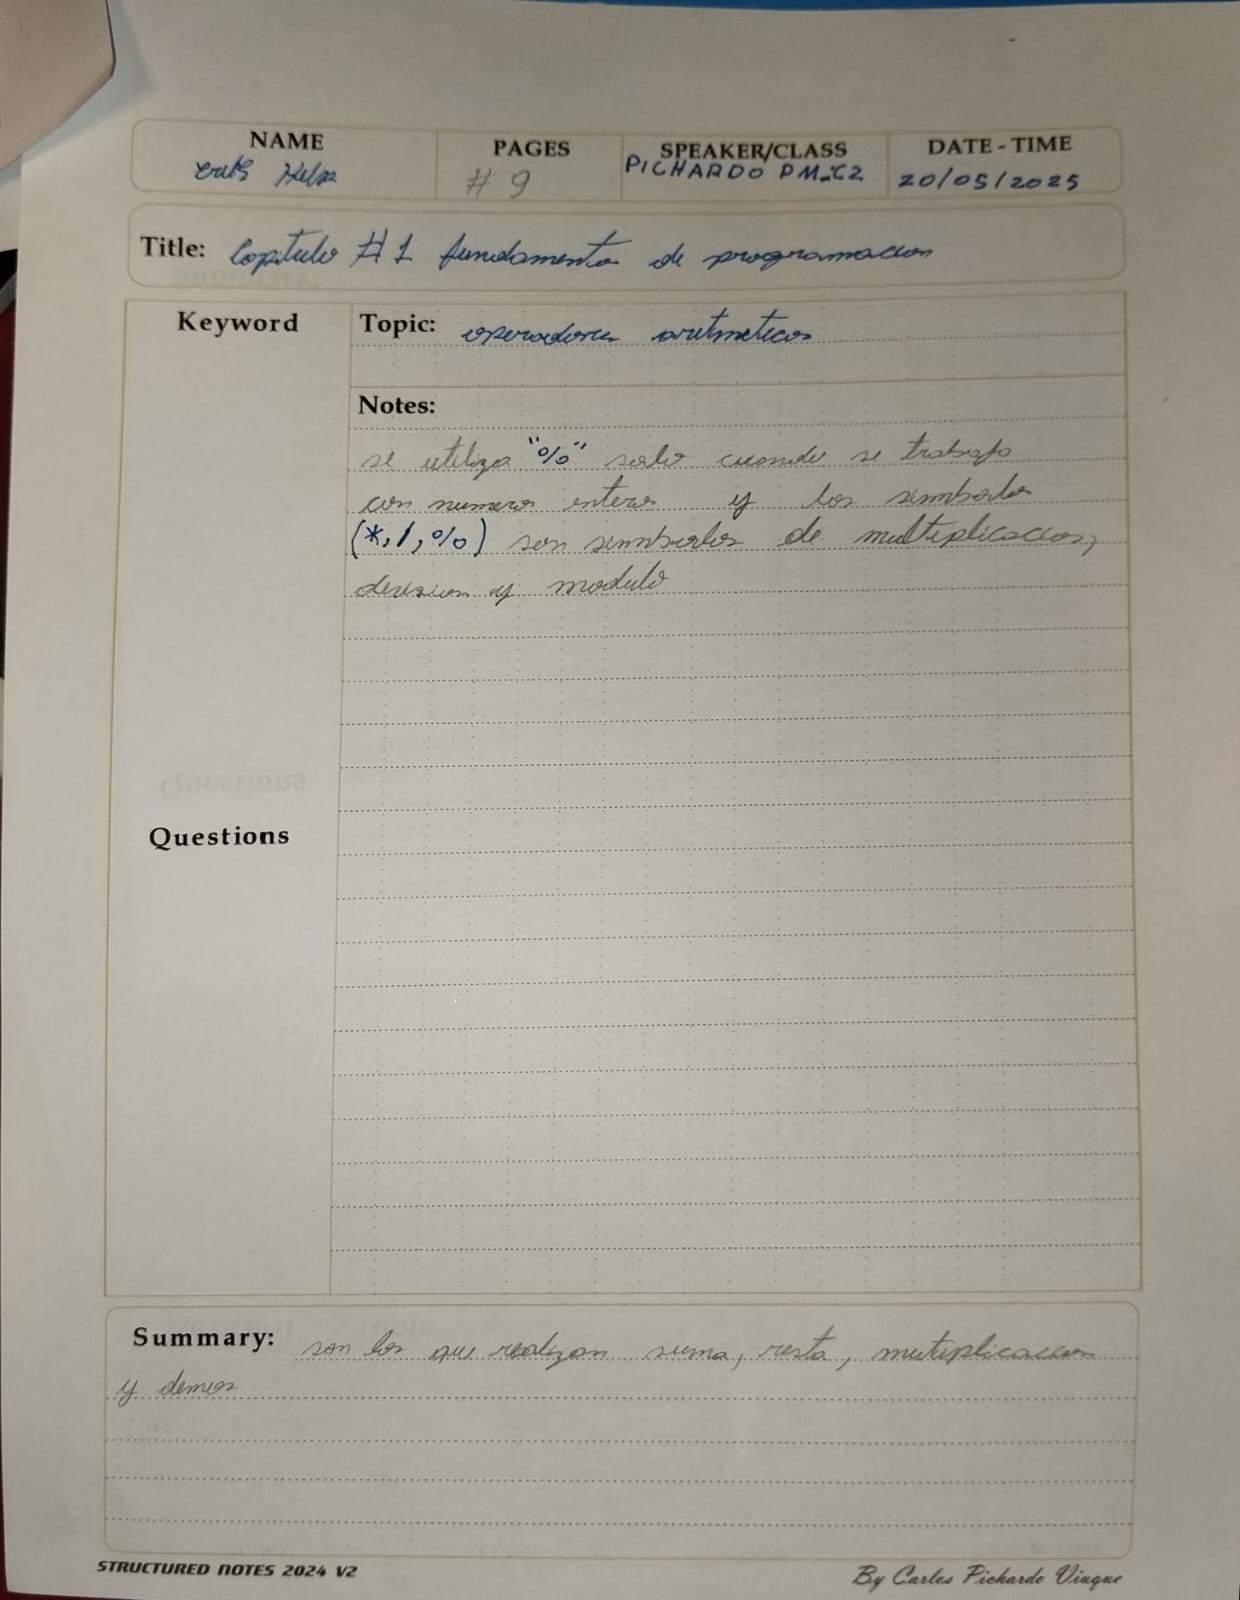 NAME PAGES SPEAKER/CLASS DATE - TIME
# 9 PICHARDO PM-C2 20/05/2025
Title: Capitulo #1 fundamento de programacion
Keyword Topic: operadores aritmeticos
Notes:
se utiliza "%" solo cuando se trabaja
con numeros enteros y los simbolos
(*, /, %) son simbolos de multiplicacion,
division y modulo
Questions
Summary: son los que realizan suma, resta, multiplicacion
y demas
STRUCTURED NOTES 2024 V2 By Carlos Pichardo Viuque